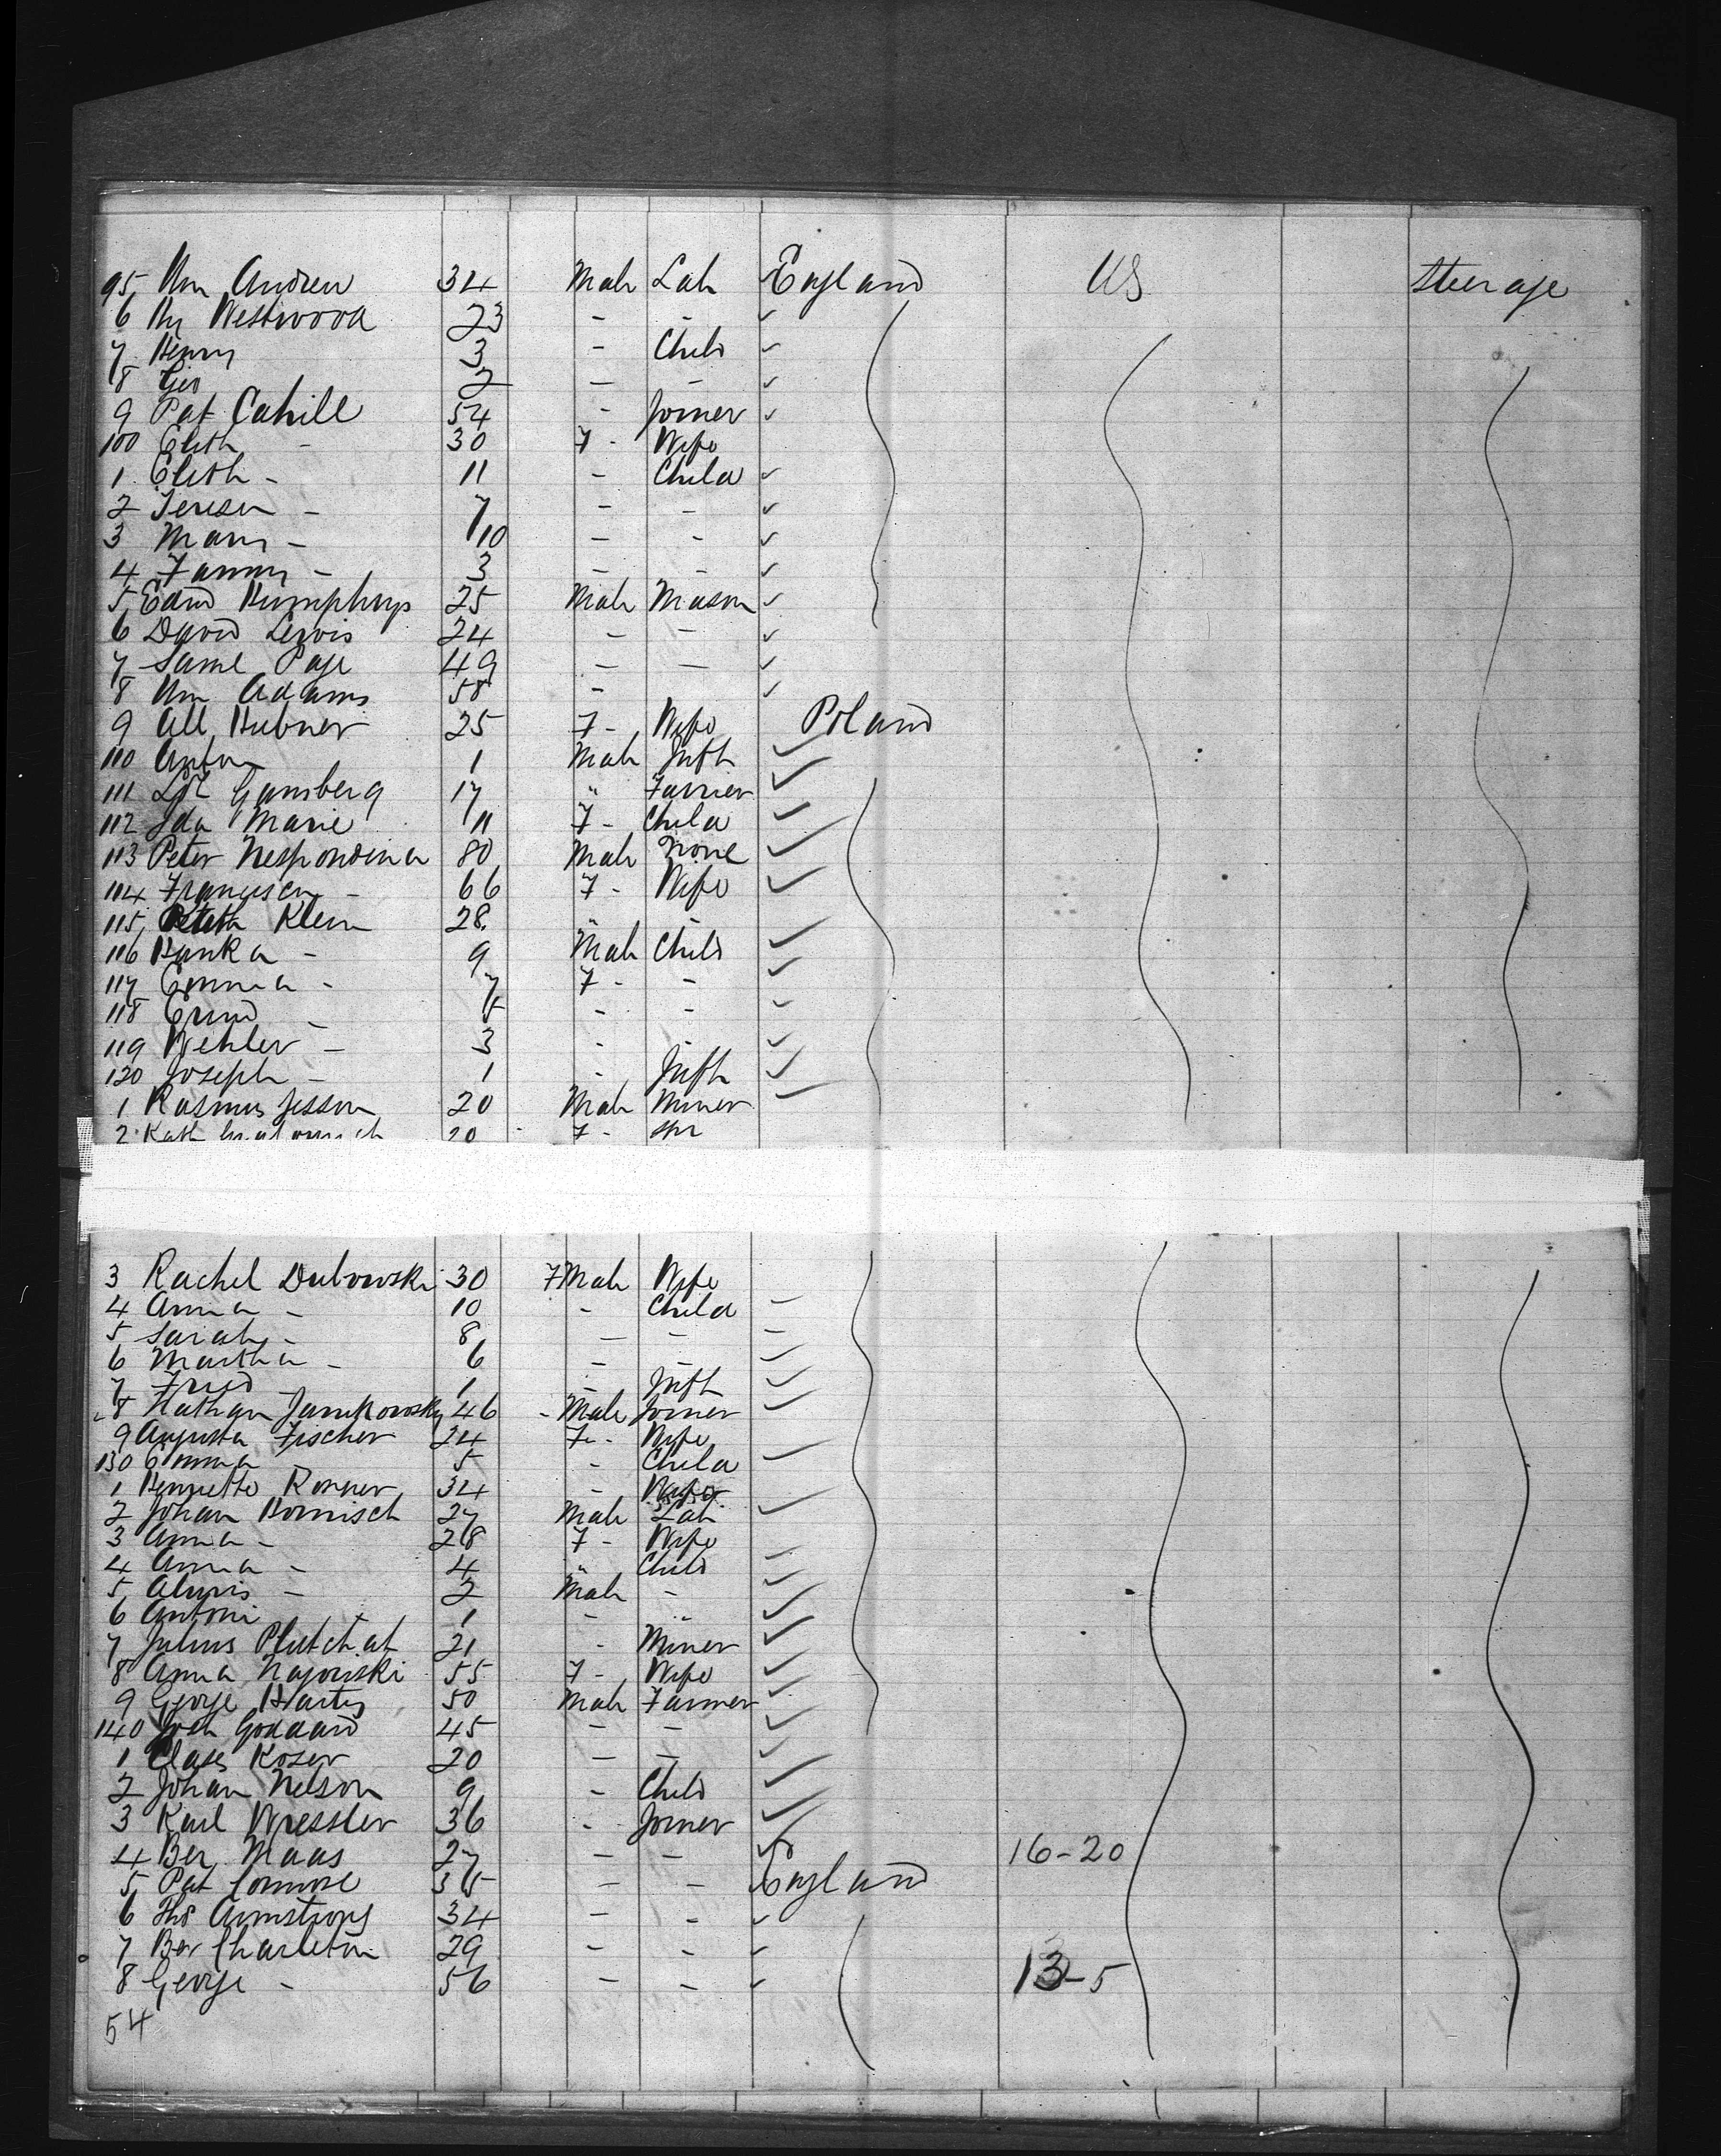 95 Wm Andrew 34 Male Lab England US Steerage
6 Hy Westwood 23 - -
7 Henry 3 - Child
8 Geo 2 - -
9 Pat Cahill 54 - Joiner
100 Elizth - 30 F - Wife
1 Elizth - 11 - Child
2 Teresa - 7 - -
3 Mary - 10 - -
4 Fanny - 3 - -
5 Edwd Humphrys 25 Male Mason
6 David Lewis 24 - -
7 Saml Page 49 - -
8 Wm Adams 58 -
9 Hubner 25 F - Wife Poland
110 Anton 1 Male Inft
111 Gansberg 17 " Farrier
112 Ida Marie 11 F - Child
113 Peter Nespondina 80 Male None
114 Francisca - 66 F - Wife
115 Klein 28 " "
116 Hanka - 9 Male Child
117 Emma - 7 F - -
118 - 5 - -
119 Wehler - 3 - -
120 Joseph - 1 - Inft
1 Rasmus Jesson 20 Male Miner
2 Kath 20 F - Spr
3 Rachel Dubowski 30 F Male Wife
4 Anna - 10 - Child
5 Sarah - 8 - -
6 Martha - 6 - -
7 Fried 1 - Inft
8 Nathan Jankowsky 46 - Male Joiner
9 Augusta Fischer 24 F - Wife
130 Emma 5 - Child
1 Henriette Ronner 34 - Wife
2 Johan Hornisch 27 Male Lab
3 Anna - 28 F - Wife
4 Anna - 4 " Child
5 Alwis - 2 Male -
6 Antoni 1 - "
7 Julius Plutchat 21 - Miner
8 Anna Najowski 55 F - Wife
9 George Hartig 50 Male Farmer
140 Goddard 45 - -
1 Claes Koser 20 - -
2 Johan Nelson 9 - Child
3 Karl Wressler 36 - Joiner
4 Ber Maas 27 - - 16-20
5 Pat 35 - - England
6 Ths Armstrong 34 - -
7 Ber Charleton 29 - -
8 George - 56 - - 13-5
54